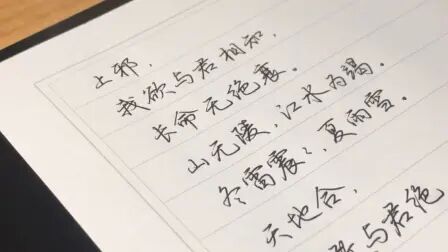 上邪，
我欲与君相知，
长命无绝衰。
山无陵，江水为竭。
冬雷震ミ，夏雨雪。
天地合，
与君绝